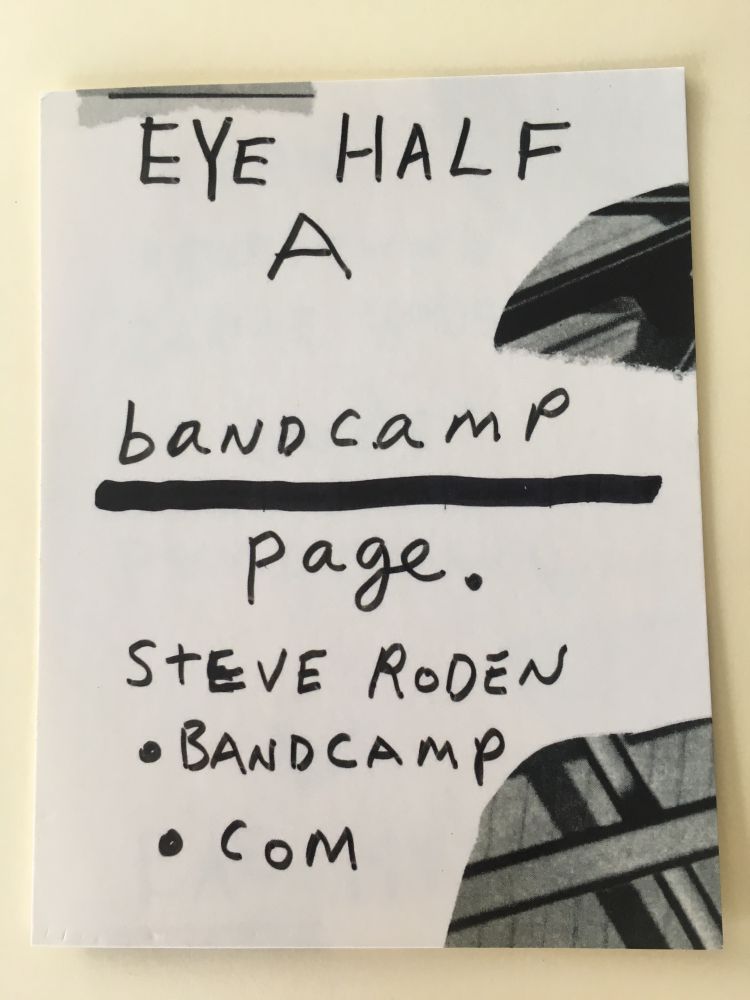 EYE HALF
A
bandcamp
page.
STEVE RODEN
•BANDCAMP
•COM